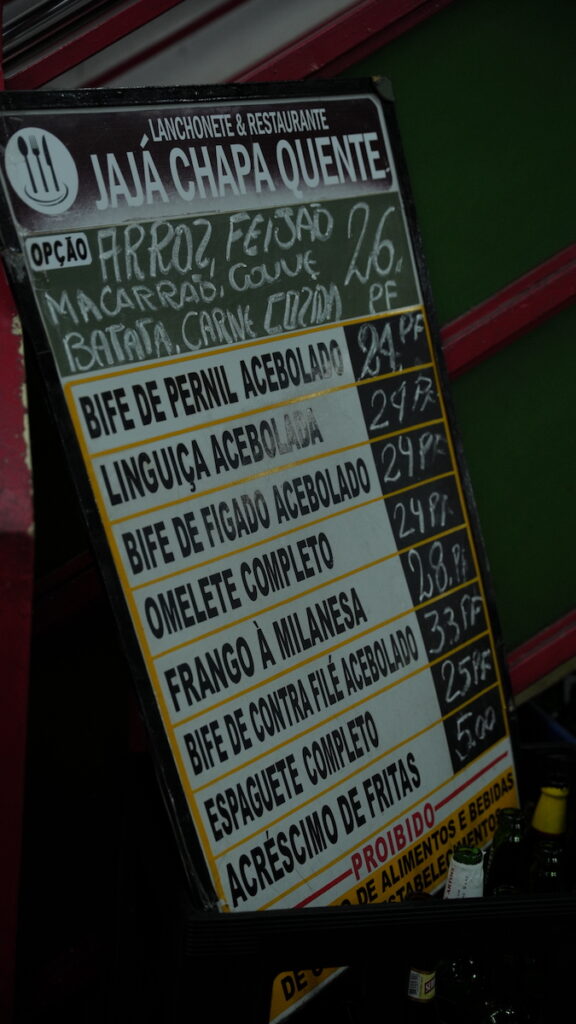 LANCHONETE & RESTAURANTE
JAJÁ CHAPA QUENTE
OPÇÃO ARROZ, FEIJÃO 26,
MACARRÃO, COUVE PF
BATATA, CARNE COZIDA
BIFE DE PERNIL ACEBOLADO 24, PF
LINGUIÇA ACEBOLADA 24 PF
BIFE DE FIGADO ACEBOLADO 24 PF
OMELETE COMPLETO 24 PF
FRANGO À MILANESA 28, PF
BIFE DE CONTRA FILÉ ACEBOLADO 33 PF
ESPAGUETE COMPLETO 25 PF
ACRÉSCIMO DE FRITAS 5,00
PROIBIDO
DE ALIMENTOS E BEBIDAS
DE